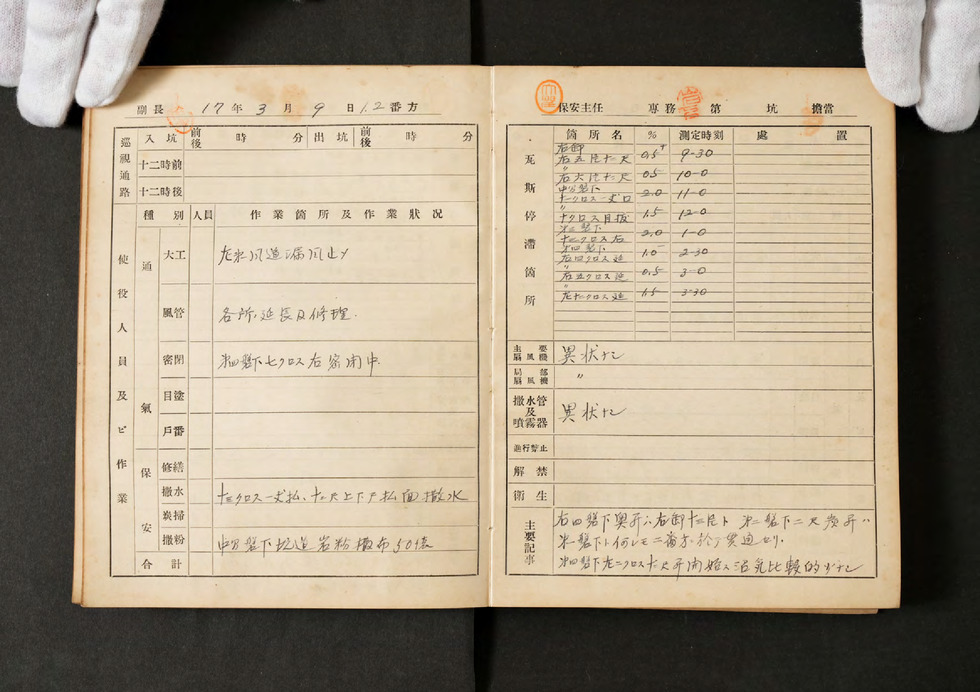 副長 17年 3月 9日 1.2番方
巡視通路 入坑 前後 時 分 出坑 前後 時 分
十二時前
十二時後
使役人員及ビ作業 種別 人員 作業箇所及作業狀況
通氣
大工 左 風道漏風止メ
風管 各所延長及修理.
密閉 第四盤下七クロス右密閉中
目塗
戶番
保安
修繕
撒水 十三クロス一丈払、十二尺上下戸払面撒水
炭掃
撒粉 中分盤下坑道岩粉撒布50
合計
保安主任 專務 第 坑 擔當
瓦斯停滯箇所 箇所名 % 測定時刻 處置
右卸
右五片十二尺 0.5 9-30
〃
右六片十二尺 0.5 10-0
中分盤下
十一クロス一丈口 2.0 11-0
〃
十クロス目抜 1.5 12-0
第三盤下
十二クロス右 2.0 1-0
第四盤下
右四クロス延 1.0 2-30
〃
右五クロス延 0.5 3-0
〃
左十二クロス延 1.5 3-30
主要扇風機 異状ナシ
局部扇風機 〃
撒水管及噴霧器 異状ナシ
進行暫止
解禁
衛生
主要記事
右四盤下奥昇ハ右卸十三片ト 第二盤下二尺 昇ハ
第 盤下ト何レモ二番方ニ於テ貫通セリ.
第四盤下左二クロス十二尺昇開始ス沼気比較的少ナシ